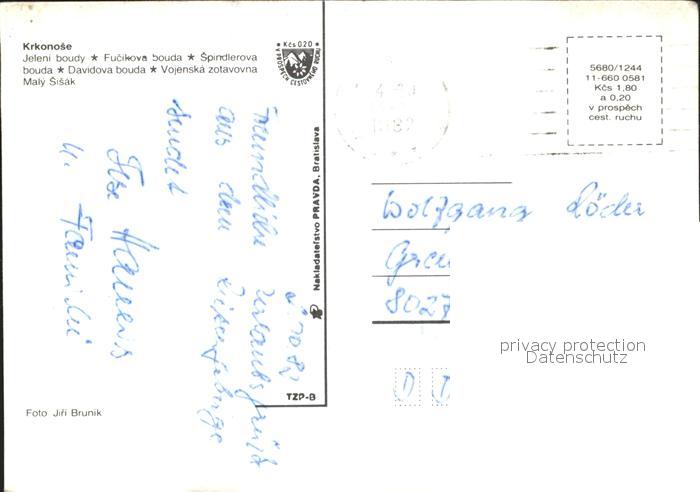 Krkonoše
Jelení boudy ★ Fučíkova bouda ★ Špindlerova
bouda ★ Davidova bouda ★ Vojenská zotavovna
Malý Šišák
Kčs 0.20
V PROSPĚCH CESTOVNÉHO RUCHU
Nakladateľstvo PRAVDA, Bratislava
TZP-B
Foto Jiří Brunik
5680/1244
11-660 0581
Kčs 1,80
a 0,20
v prospěch
cest. ruchu
Freundliche Urlaubsgrüße
aus dem Riesengebirge
sendet
u. Familie
Wolfgang Röder
8027
privacy protection
Datenschutz
D